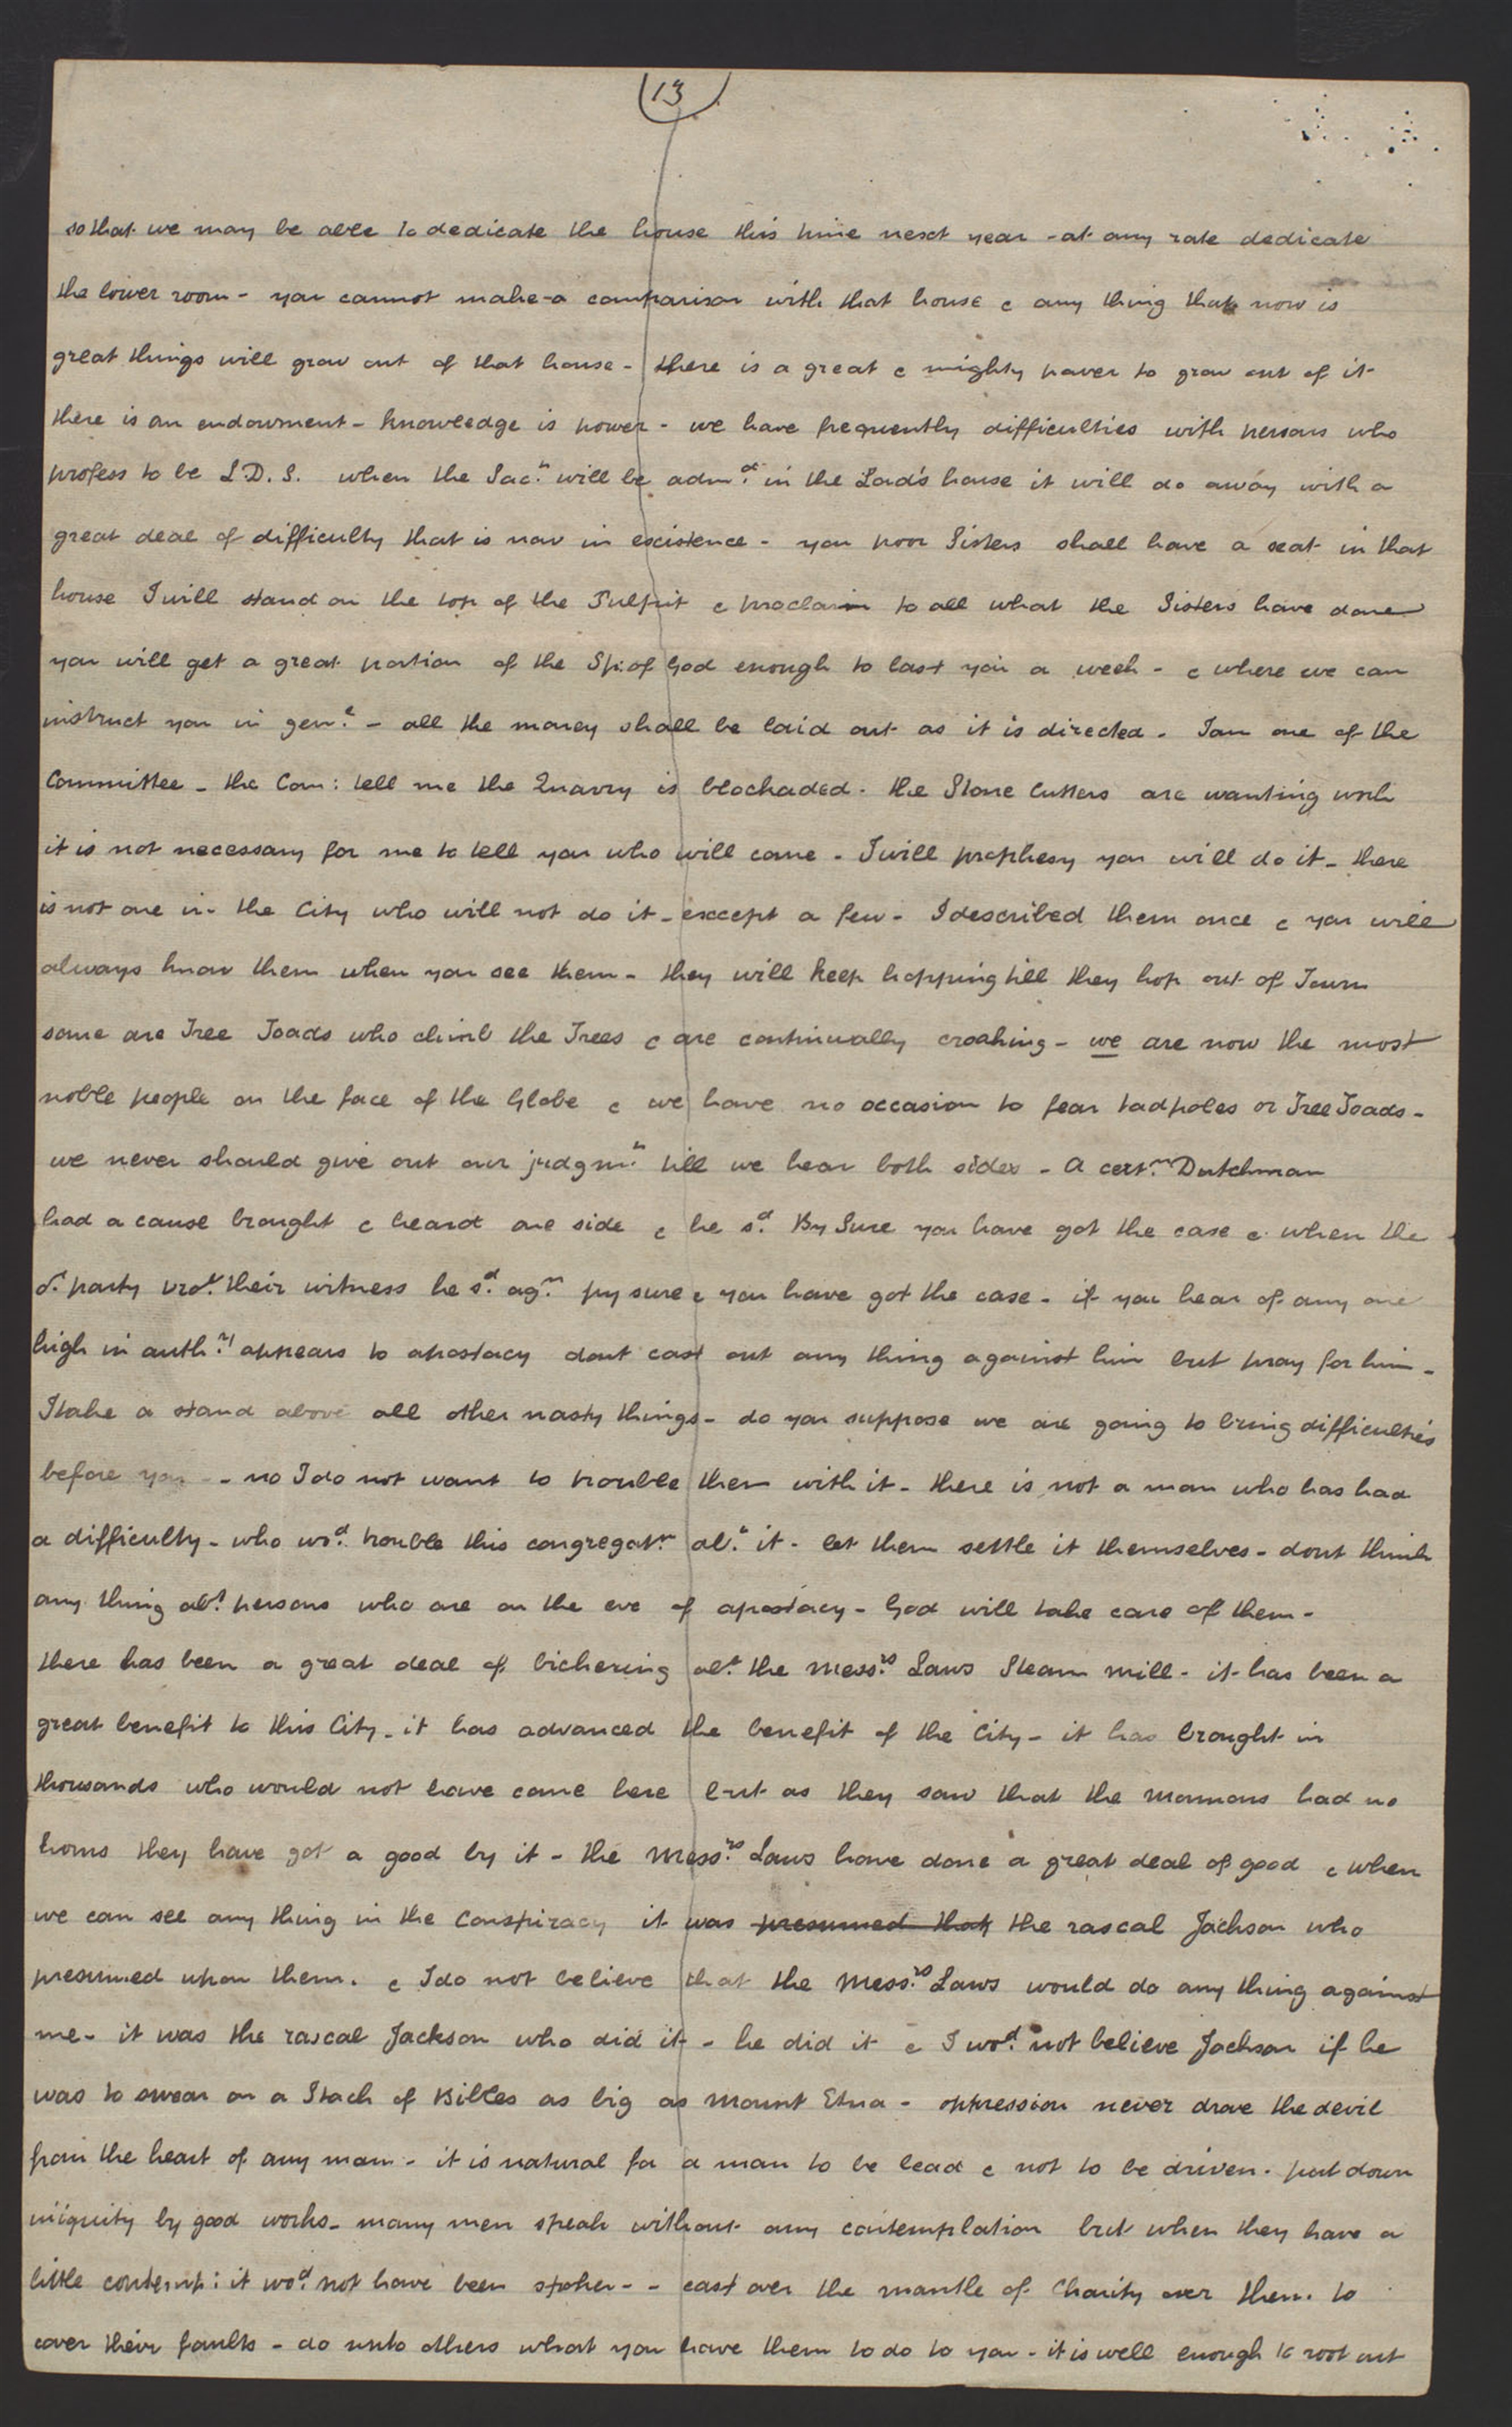 13
so that we may be able to dedicate the house this time next year - at any rate dedicate
the lower room - you cannot make a comparison with that house & any thing that now is
great things will grow out of that house - there is a great & mighty power to grow out of it -
there is an endowment - knowledge is power - we have frequently difficulties with persons who
profess to be L.D.S. when the Sac.t will be adm.d in the Lord's house it will do away with a
great deal of difficulty that is now in existence - you poor Sisters shall have a seat in that
house I will stand on the top of the Pulpit & proclaim to all what the Sisters have done
you will get a great portion of the Sp: of God enough to last you a week - & where we can
instruct you in gen.l - all the money shall be laid out as it is directed - I am one of the
Committee - the Com: tell me the Quarry is blockaded - the Stone Cutters are wanting work
it is not necessary for me to tell you who will come - I will prophesy you will do it - there
is not one in the City who will not do it - except a few - I described them once & you will
always know them when you see them - they will keep hopping till they hop out of Town
some are Tree Toads who climb the Trees & are continually croaking - we are now the most
noble people on the face of the Globe & we have no occasion to fear tadpoles or Tree Toads -
we never should give out our judgm.t till we hear both sides - A cert.n Dutchman
had a cause brought & heard one side & he s.d By Sure you have got the case & when the
o.r party bro.t their witness he s.d ag.n py sure & you have got the case - if you hear of any one
high in auth.y appears to apostacy dont cast out any thing against him but pray for him -
I take a stand above all other nasty things - do you suppose we are going to bring difficulties
before you - - no I do not want to trouble them with it - there is not a man who has had
a difficulty - who wo.d trouble this congregat.n ab.t it - let them settle it themselves - dont think
any thing ab.t persons who are on the eve of apostacy - God will take care of them -
there has been a great deal of bickering ab.t the Mess.rs Laws Steam mill - it has been a
great benefit to this City - it has advanced the benefit of the City - it has brought in
thousands who would not have come here but as they saw that the Mormons had no
horns they have got a good by it - the Mess.rs Laws have done a great deal of good & when
we can see any thing in the Conspiracy it was presumed that the rascal Jackson who
presumed upon them. & I do not believe that the Mess.rs Laws would do any thing against
me - it was the rascal Jackson who did it - he did it & I wo.d not believe Jackson if he
was to swear on a Stack of Bibles as big as Mount Etna - oppression never drove the devil
from the heart of any man - it is natural for a man to be lead & not to be driven. put down
iniquity by good works - many men speak without any contemplation but when they have a
little contemp: it wo.d not have been spoken - - cast over the mantle of Charity over them. to
cover their faults - do unto others what you have them to do to you - it is well enough to root out